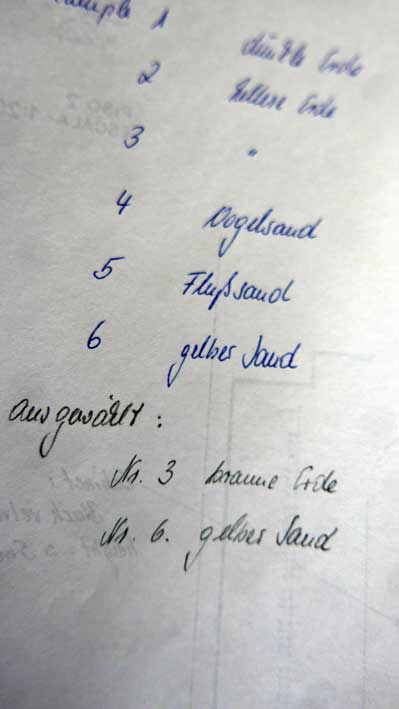 Sample 1 dunkle Erde
2 hellere Erde
3 "
4 Vogelsand
5 Flußsand
6 gelber Sand
ausgewählt:
Nr. 3 braune Erde
Nr. 6. gelber Sand